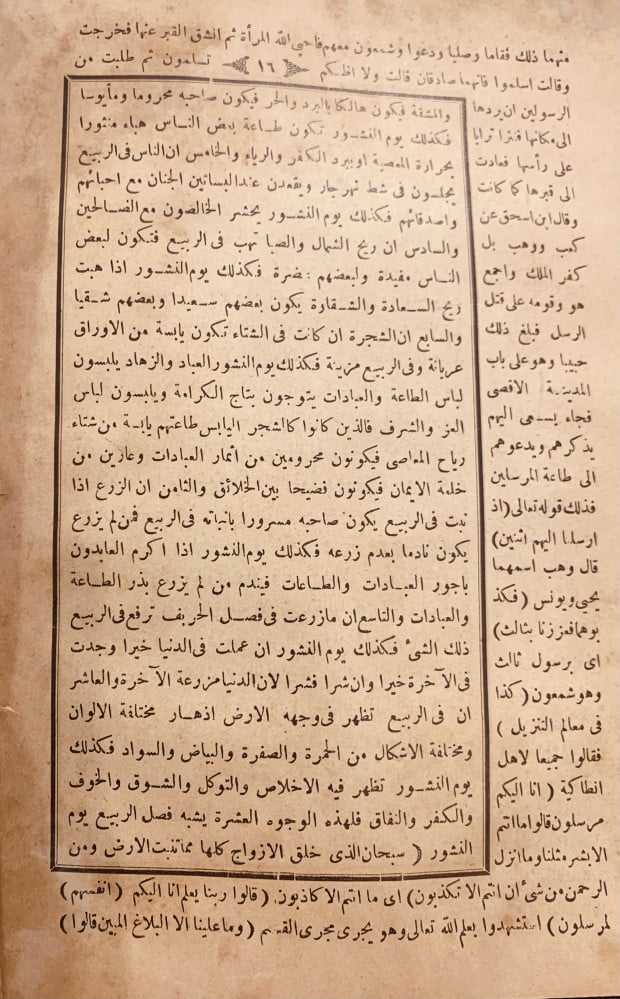 منهما ذلك فقاما وصليا ودعوا وشمعون معهم فاحيى الله المرأة ثم انشق القبر عنها فخرجت
وقالت اسلموا فانهما صادقان قالت ولا اظنكم
١٦
تسلمون ثم طلبت من
الرسولين ان يردها
الى مكانها فنثرا ترابا
على رأسها فعادت
الى قبرها كما كانت
وقال ابن اسحق عن
كعب ووهب بل
كفر الملك واجمع
هو وقومه على قتل
الرسل فبلغ ذلك
حبيبا وهو على باب
المدينة الاقصى
فجاء يسعى اليهم
يذكرهم ويدعوهم
الى طاعة المرسلين
فذلك قوله تعالى (اذ
ارسلنا اليهم اثنين)
قال وهب اسمهما
يحيى ويونس (فكذ
بوهما فعززنا بثالث)
اى برسول ثالث
وهو شمعون (كذا
فى معالم التنزيل)
فقالوا جميعا لاهل
انطاكية (انا اليكم
مرسلون قالوا ما انتم
الا بشر مثلنا وما انزل
الرحمن من شئ ان انتم الا تكذبون) اى ما انتم الا كاذبون (قالوا ربنا يعلم انا اليكم (انفسهم)
لمرسلون) استشهدوا بعلم الله تعالى وهو يجرى مجرى القسم (وما علينا الا البلاغ المبين قالوا)
والمشقة فيكون هالكا بالبرد والحر فيكون صاحبه محروما ومأيوسا
فكذلك يوم النشور تكون طاعة بعض الناس هباء منثورا
بحرارة المعصية او ببرد الكفر والرياء والخامس ان الناس فى الربيع
يجلسون فى شط نهر جار ويقعدن عند البساتين الجنان مع احبائهم
واصدقائهم فكذلك يوم النشور يحشر الخالصون مع الصالحين
والسادس ان ريح الشمال والصبا تهب فى الربيع فتكون لبعض
الناس مفيدة ولبعضهم مضرة فكذلك يوم النشور اذا هبت
ريح السعادة والشقاوة يكون بعضهم سعيدا وبعضهم شقيا
والسابع ان الشجرة ان كانت فى الشتاء تكون يابسة من الاوراق
عريانة وفى الربيع مزينة فكذلك يوم النشور العباد والزهاد يلبسون
لباس الطاعة والعبادات يتوجون بتاج الكرامة ويلبسون لباس
العز والشرف فالذين كانوا كالشجر اليابس طاعتهم يابسة من شتاء
رياح المعاصى فيكونون محرومين من اثمار العبادات وعارين من
خلعة الايمان فيكونون فضيحا بين الخلائق والثامن ان الزرع اذا
نبت فى الربيع يكون صاحبه مسرورا بانباته فى الربيع فمن لم يزرع
يكون نادما بعدم زرعه فكذلك يوم النشور اذا اكرم العابدون
باجور العبادات والطاعات فيندم من لم يزرع بذر الطاعة
والعبادات والتاسع ان مازرعت فى فصل الخريف ترفع فى الربيع
ذلك الشئ فكذلك يوم النشور ان عملت فى الدنيا خيرا وجدت
فى الآخرة خيرا وان شرا فشرا لان الدنيا مزرعة الآخرة والعاشر
ان فى الربيع تظهر فى وجهه الارض اذهار مختلفة الالوان
ومختلفة الاشكال من الحمرة والصفرة والبياض والسواد فكذلك
يوم النشور تظهر فيه الاخلاص والتوكل والشوق والخوف
والكفر والنفاق فلهذه الوجوه العشرة يشبه فصل الربيع يوم
النشور (سبحان الذى خلق الازواج كلها مما تنبت الارض ومن